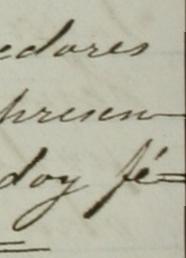 edores
presen
doy fé=